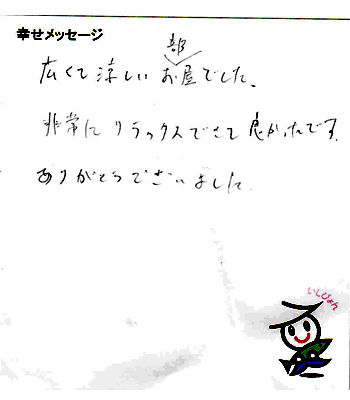 幸せメッセージ
広くて涼しいお部屋でした。
非常にリラックスできて良かったです。
ありがとうございました。
いしぴょん